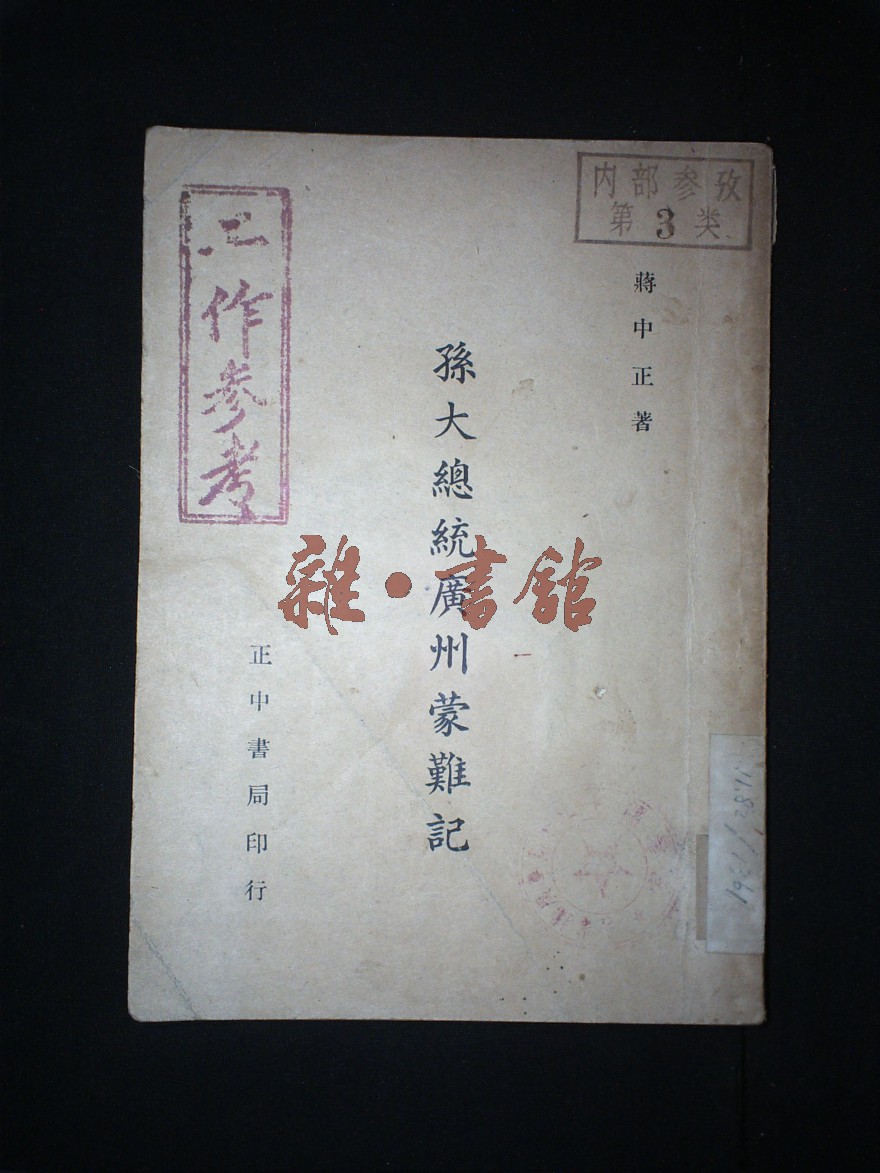 内部参攷
第3类
蔣中正著
孫大總統廣州蒙難記
正中書局印行
工作参考
雜·書舘